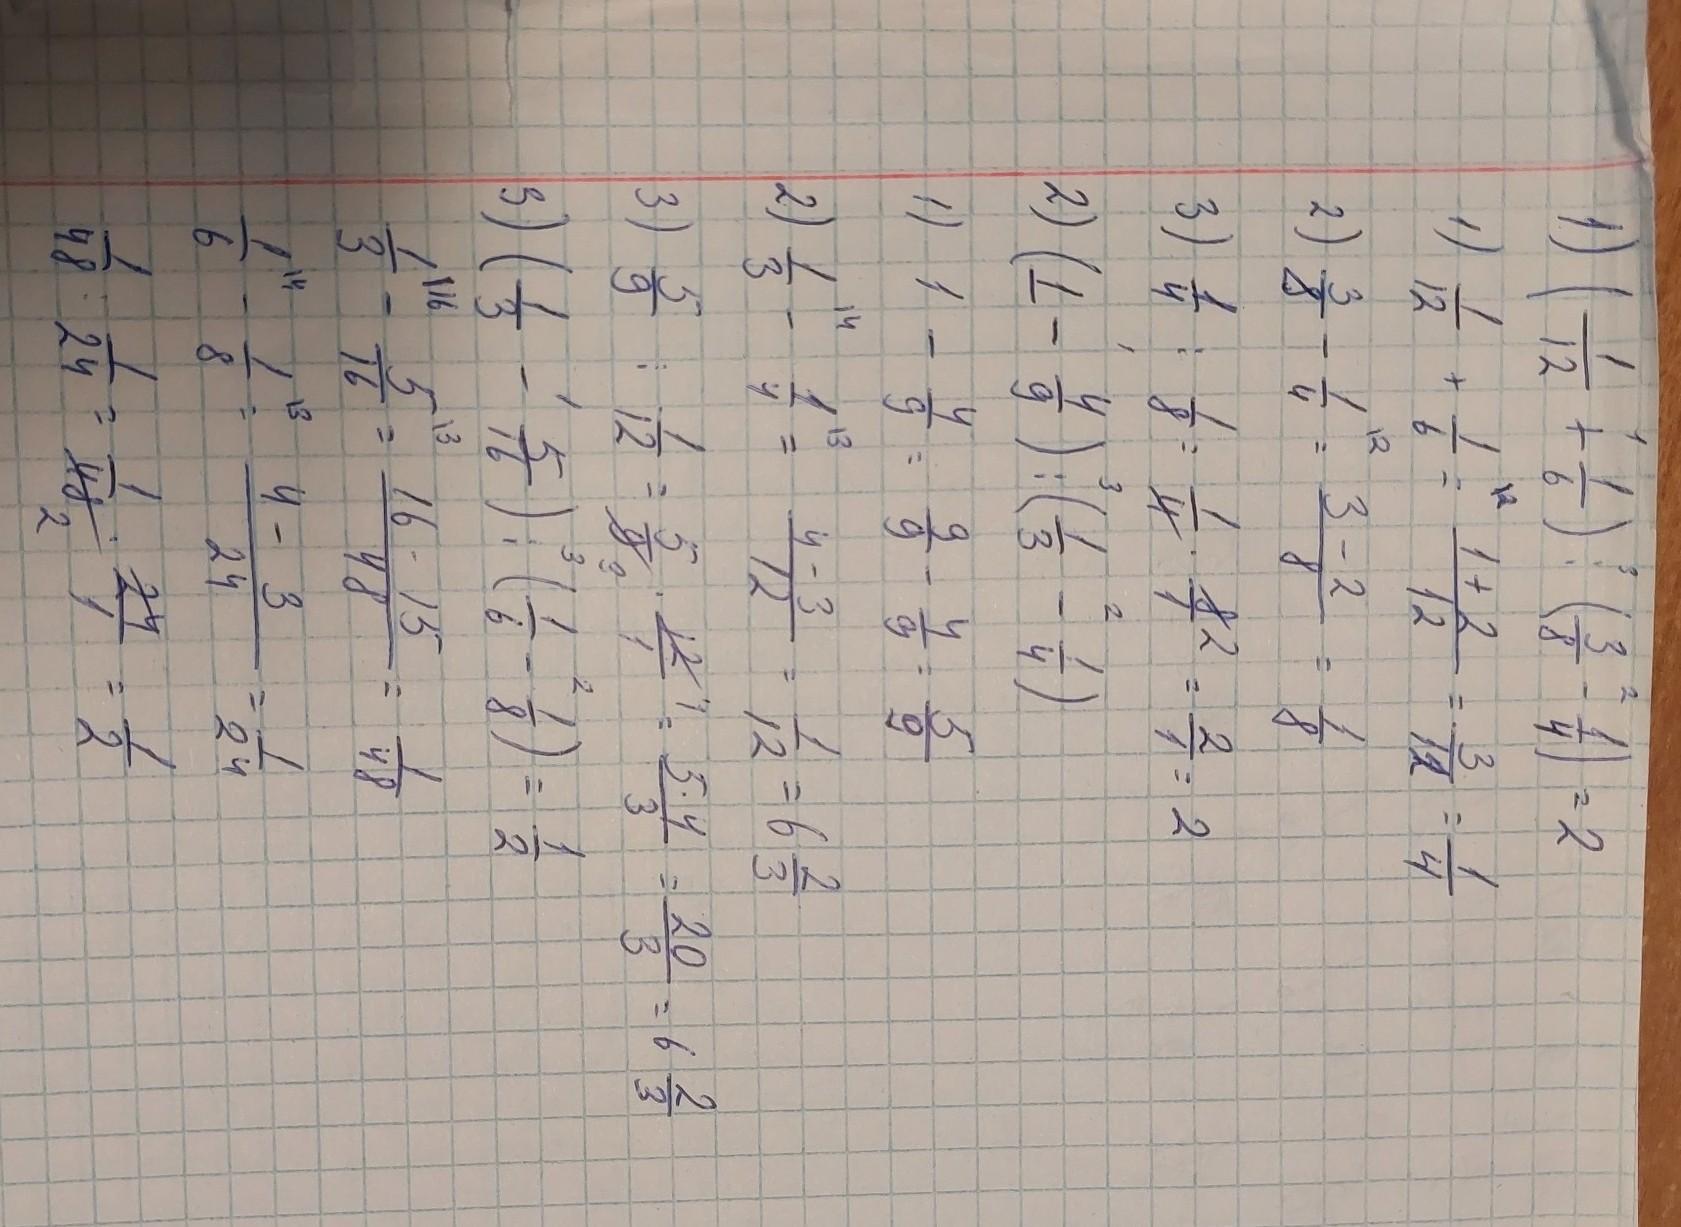 1) (1/12 + 1/6) : (3/8 - 1/4) = 2
1) 1/12 + 1/6 = 1+2/12 = 3/12 = 1/4
2) 3/8 - 1/4 = 3-2/8 = 1/8
3) 1/4 : 1/8 = 1/4 · 8/1 2 = 2/1 = 2
2) (1 - 4/9) : (1/3 - 1/4)
1) 1 - 4/9 = 9/9 - 4/9 = 5/9
2) 1/3 - 1/4 = 4-3/12 = 1/12 = 6 2/3
3) 5/9 : 1/12 = 5/9 · 12/1 = 5·4/3 = 20/3 = 6 2/3
3) (1/3 - 5/16) : (1/6 - 1/8) = 1/2
1/3 - 5/16 = 16-15/48 = 1/48
1/6 - 1/8 = 4-3/24 = 1/24
1/48 : 1/24 = 1/48 2 · 24/1 = 1/2